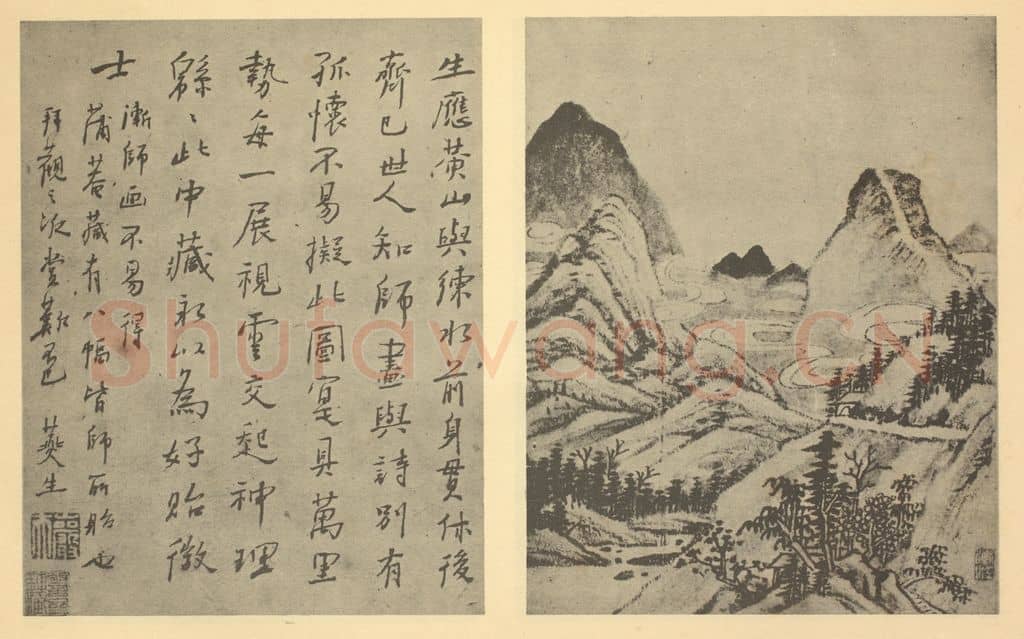 生應黄山與練水前身貫休後
齊已世人知師畫與詩別有
孤懷不易擬此圖寔具萬里
勢每一展視靈交起神理
緜〻此中藏永以為好貽徵
士
漸師画不易得
蒲菴藏有八幅皆師所貽也
拜觀之次 燕生
Shufawang.CN